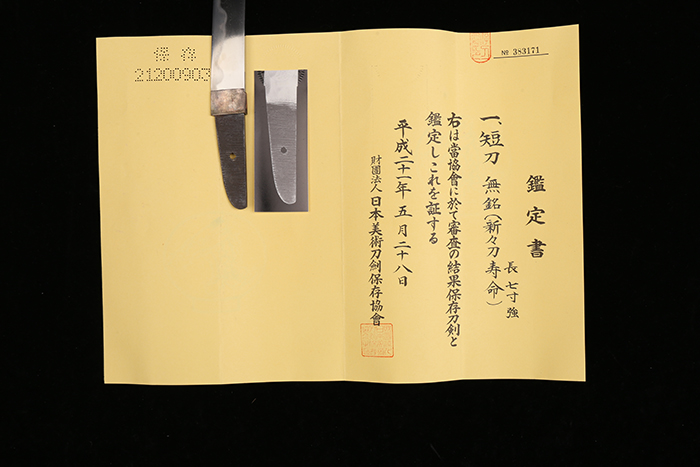 № 383171
鑑定書
一、短刀 無銘(新々刀寿命)
長 七寸強
右は當協會に於て審査の結果保存刀剣と
鑑定しこれを証する
平成二十一年五月二十八日
財團法人日本美術刀剣保存協會
保存
21200903